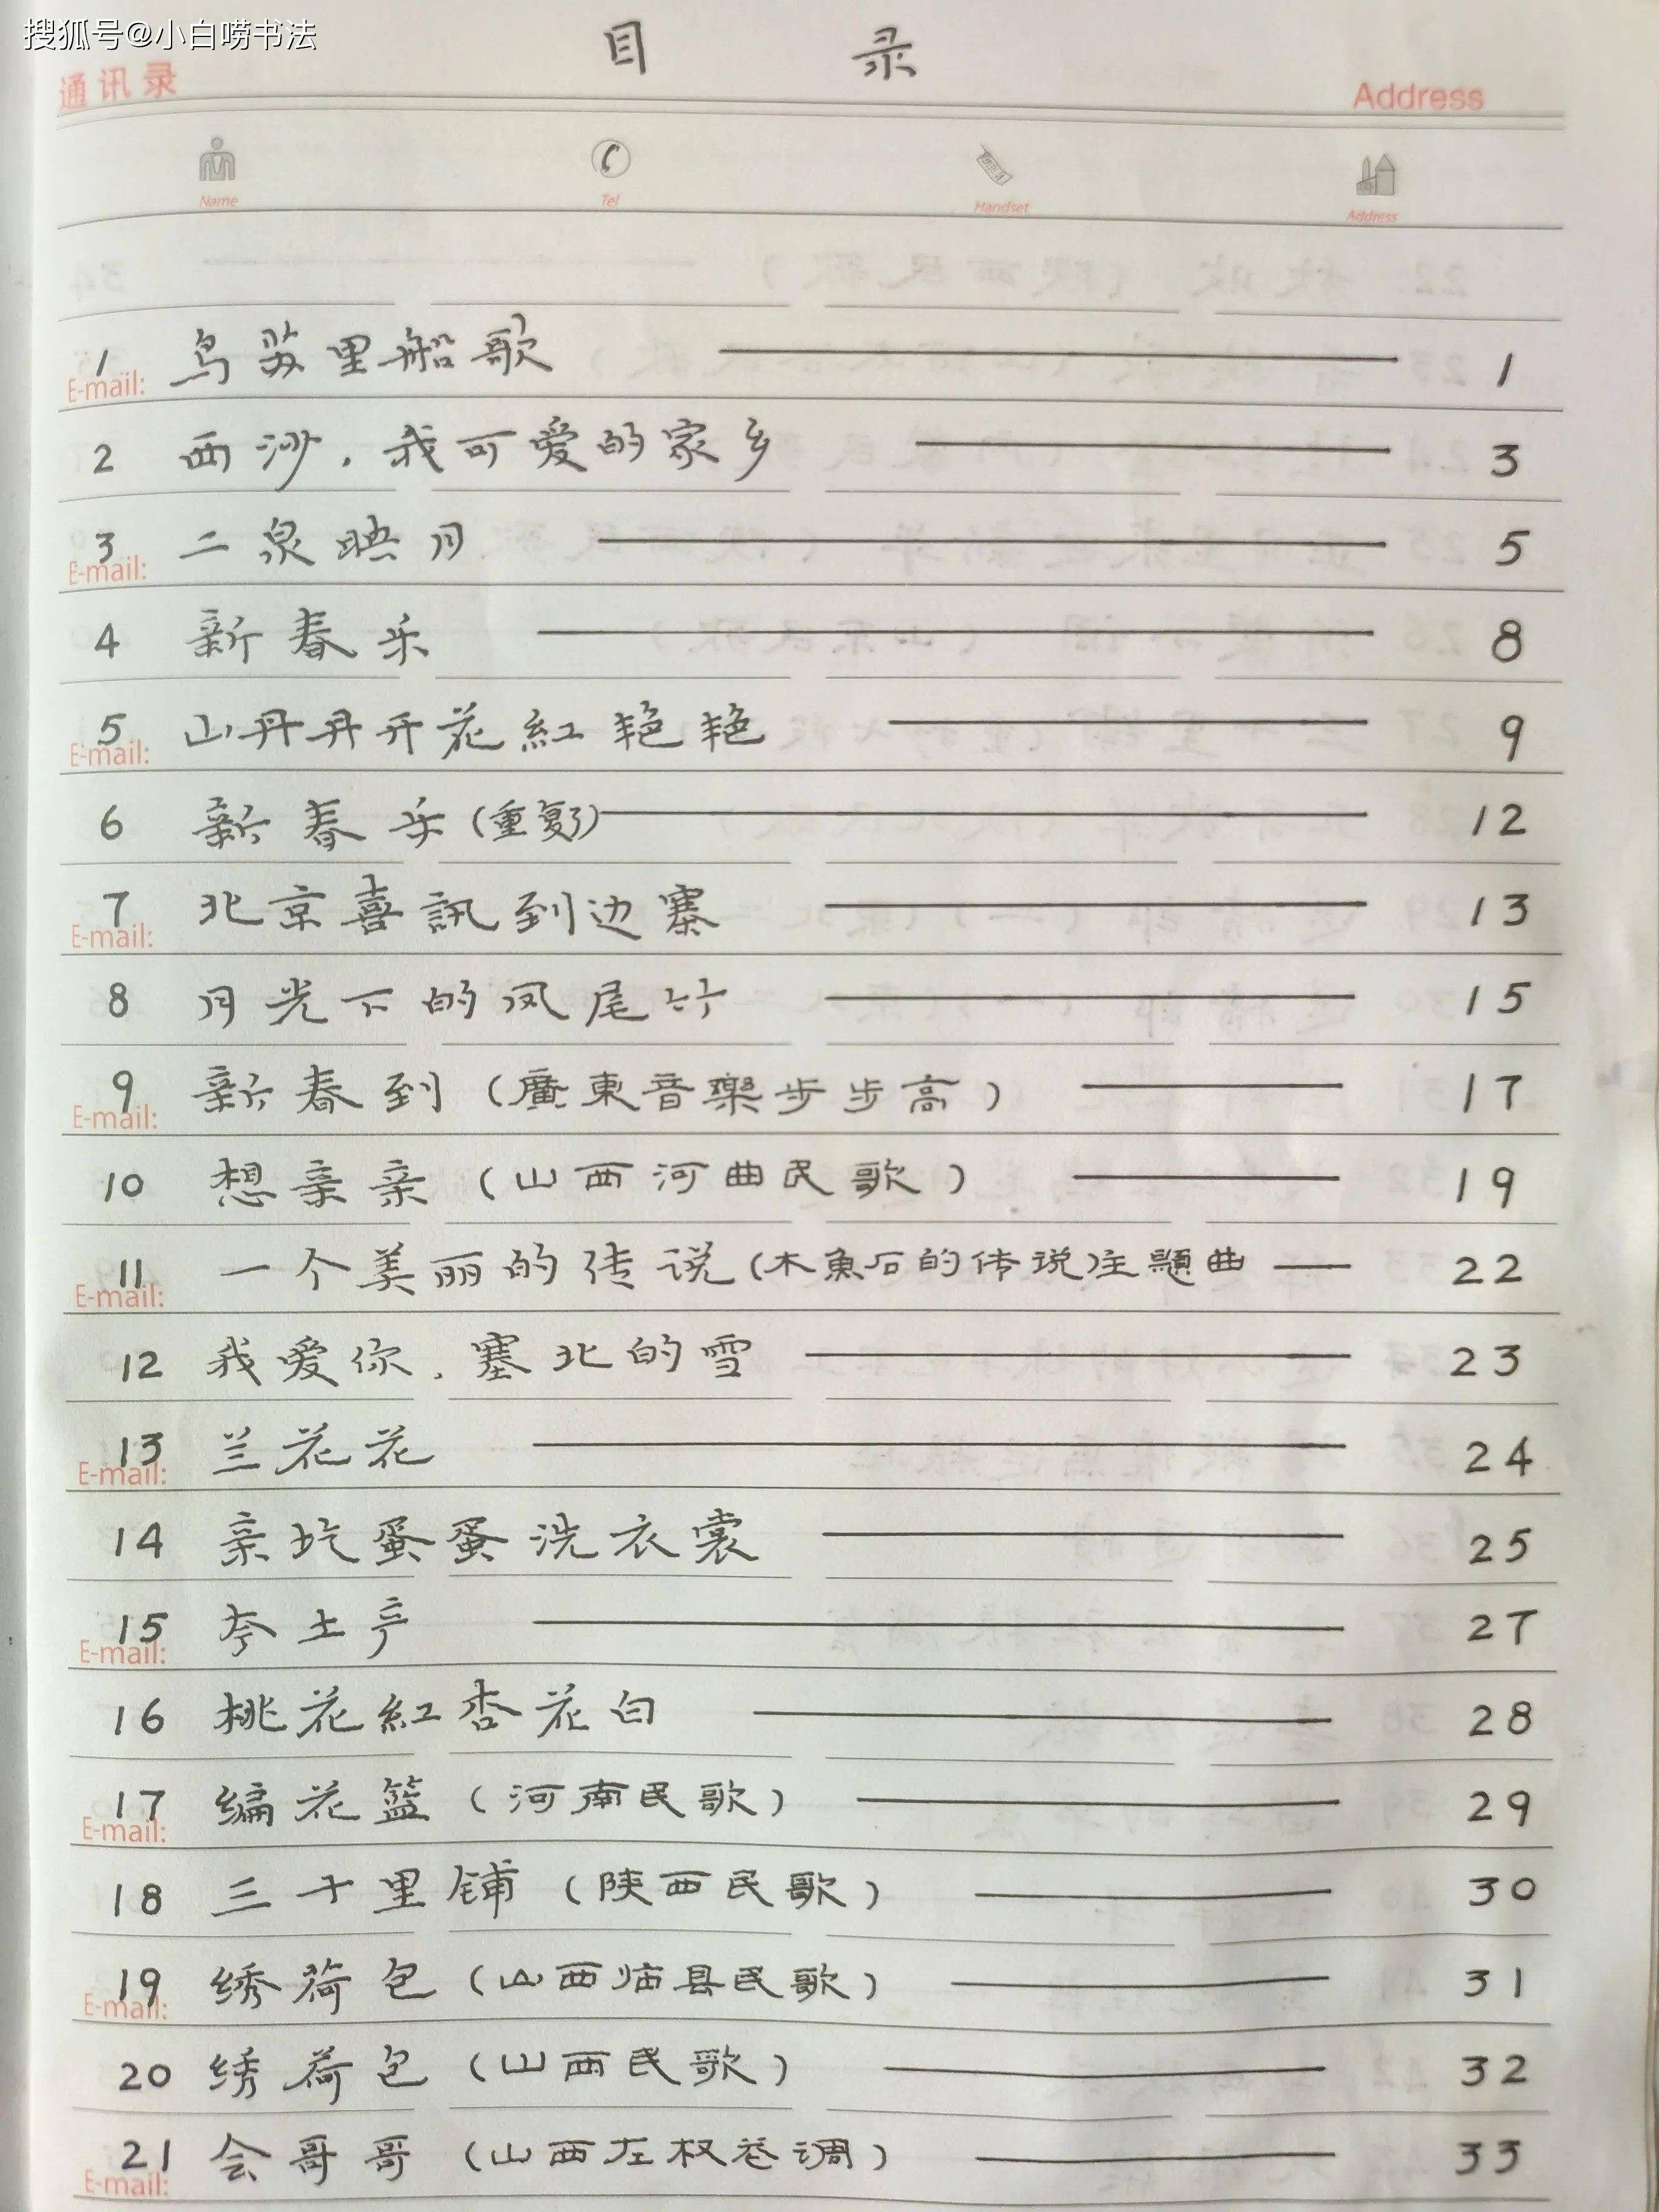 搜狐号@小白唠书法
目录
通讯录 Address
Name Tel Handset Address
1 乌苏里船歌 —— 1
E-mail:
2 西沙，我可爱的家乡 —— 3
3 二泉映月 —— 5
E-mail:
4 新春乐 —— 8
5 山丹丹开花紅艳艳 —— 9
E-mail:
6 新春乐（重复了）—— 12
7 北京喜訊到边寨 —— 13
E-mail:
8 月光下的凤尾竹 —— 15
9 新春到（廣東音樂步步高）—— 17
E-mail:
10 想亲亲（山西河曲民歌）—— 19
11 一个美丽的传说（木魚石的传说）主題曲 —— 22
E-mail:
12 我爱你，塞北的雪 —— 23
13 兰花花 —— 24
E-mail:
14 亲圪蛋蛋洗衣裳 —— 25
15 夸土产 —— 27
E-mail:
16 桃花紅杏花白 —— 28
17 编花篮（河南民歌）—— 29
E-mail:
18 三十里铺（陕西民歌）—— 30
19 绣荷包（山西县民歌）—— 31
E-mail:
20 绣荷包（山西民歌）—— 32
21 会哥哥（山西左权调）—— 33
E-mail: